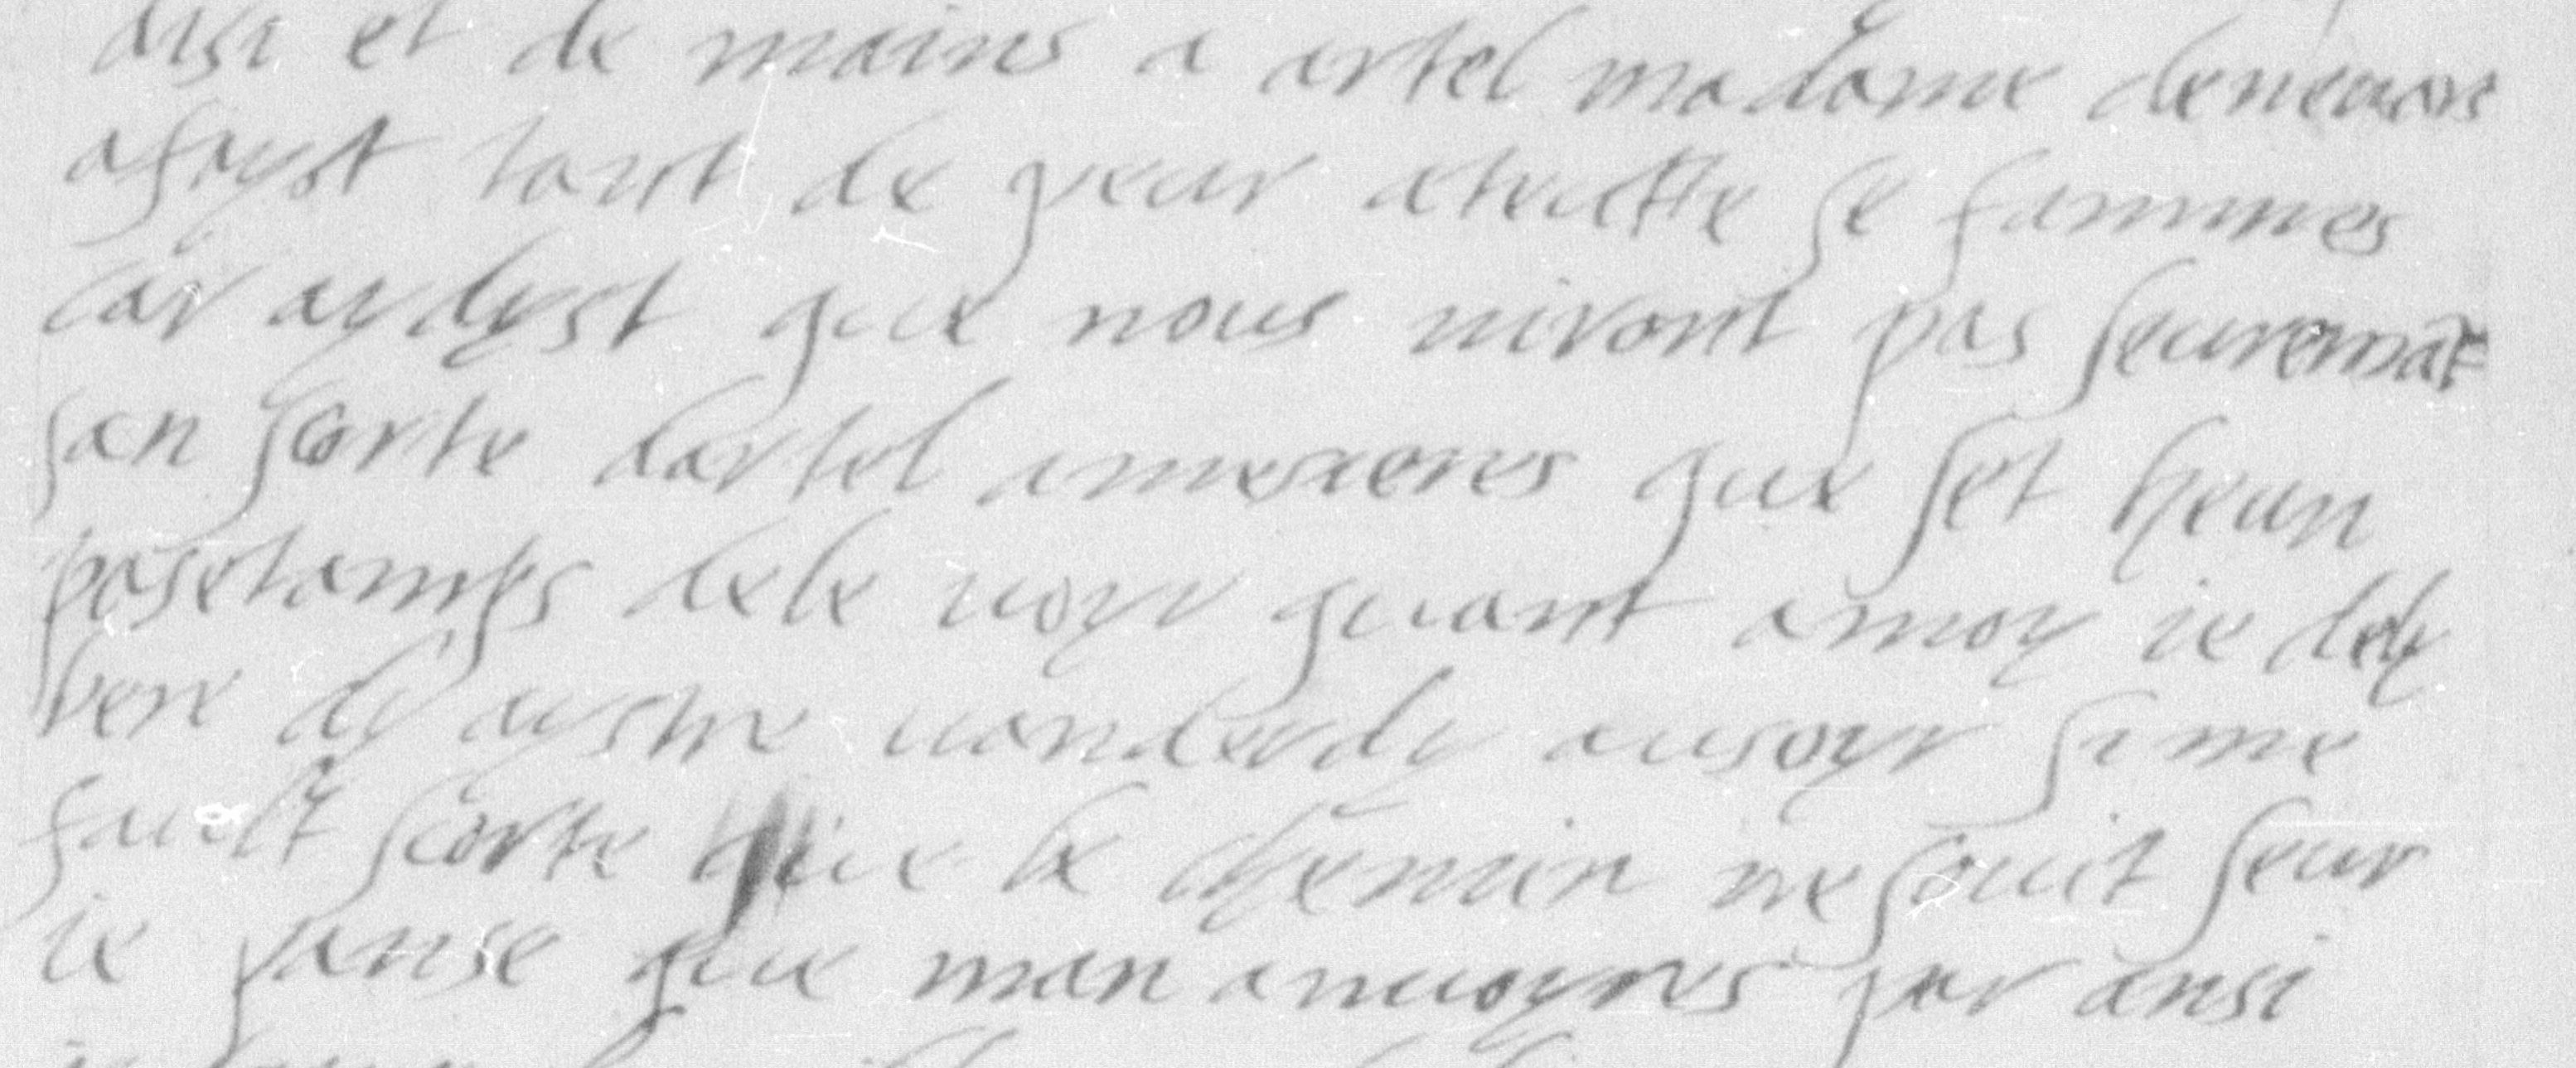 disi et de mains a artel madame denevars
afayst tant de peur a teutte se fammes
car ay dyst que nous niront pas seuremat
san scorte dartel amesieres que set beun
pasetamps de le voyr quant a moy ie dely
bere dy aystre vanderdy ausoyr si me
fault scorte que le chemin ne souit seur
ie panse que man anvoyres par ansi